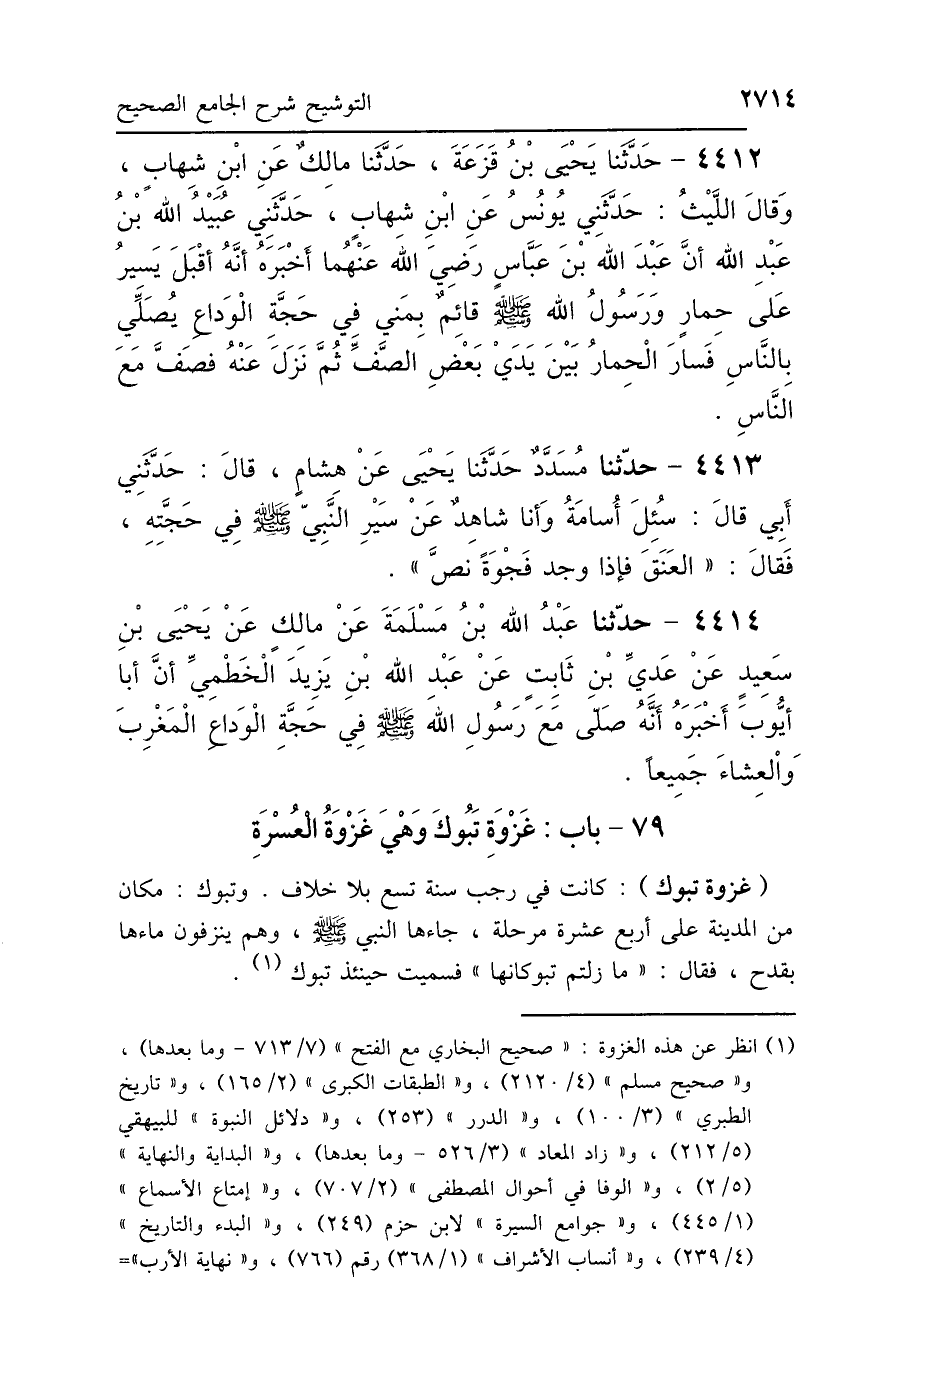 ٢٧١٤ التوشيح شرح الجامع الصحيح
٤٤١٢ - حَدَّثَنا يَحْيَى بْنُ قَزَعَةَ ، حَدَّثَنا مالكٌ عَنِ ابْنِ شهابٍ ،
وَقالَ اللَّيْثُ : حَدَّثَنِي يُونُسُ عَنِ ابْنِ شهابٍ ، حَدَّثَنِي عُبَيْدُ الله بْنُ
عَبْدِ الله أنَّ عَبْدَ الله بْنَ عَبَّاسٍ رَضِيَ الله عَنْهُما أَخْبَرَهُ أنَّهُ أقْبَلَ يَسيرُ
عَلى حمارٍ وَرَسُولُ الله ﷺ قائِمٌ بِمَني فِي حَجَّةِ الْوَداعِ يُصَلِّي
بِالنَّاسِ فَسارَ الْحمارُ بَيْنَ يَدَيْ بَعْضِ الصَّفِّ ثُمَّ نَزَلَ عَنْهُ فصَفَّ مَعَ
النَّاسِ .
٤٤١٣ - حدّثنا مُسَدَّدٌ حَدَّثَنا يَحْيَى عَنْ هِشامٍ ، قالَ : حَدَّثَنِي
أَبِي قالَ : سُئِلَ أُسامَةُ وَأنا شاهدٌ عَنْ سَيْرِ النَّبِيّ ﷺ فِي حَجَّتِهِ ،
فَقالَ : « العَنَقَ فإذا وجد فَجْوَةً نصَّ » .
٤٤١٤ - حدّثنا عَبْدُ الله بْنُ مَسْلَمَةَ عَنْ مالكٍ عَنْ يَحْيَى بْنِ
سَعِيدٍ عَنْ عَدِيِّ بْنِ ثَابِتٍ عَنْ عَبْدِ الله بْنِ يَزِيدَ الْخَطْمِيِّ أنَّ أبا
أيُّوبَ أَخْبَرَهُ أنَّهُ صَلّى مَعَ رَسُولِ الله ﷺ فِي حَجَّةِ الْوَداعِ الْمَغْرِبَ
وَالْعِشاءَ جَمِيعاً .
٧٩ - باب : غَزْوَةِ تَبُوكَ وَهْيَ غَزْوَةُ الْعُسْرَةِ
( غزوة تبوك ) : كانت في رجب سنة تسع بلا خلاف . وتبوك : مكان
من المدينة على أربع عشرة مرحلة ، جاءها النبي ﷺ ، وهم ينزفون ماءها
بقدح ، فقال : « ما زلتم تبوكانها » فسميت حينئذ تبوك (١) .
(١) انظر عن هذه الغزوة : « صحيح البخاري مع الفتح » (٧/ ٧١٣ - وما بعدها) ،
و« صحيح مسلم » (٤/ ٢١٢٠) ، و« الطبقات الكبرى » (٢/ ١٦٥) ، و« تاريخ
الطبري » (٣/ ١٠٠) ، و« الدرر » (٢٥٣) ، و« دلائل النبوة » للبيهقي
(٥/ ٢١٢) ، و« زاد المعاد » (٣/ ٥٢٦ - وما بعدها) ، و« البداية والنهاية »
(٥/ ٢) ، و« الوفا في أحوال المصطفى » (٢/ ٧٠٧) ، و« إمتاع الأسماع »
(١/ ٤٤٥) ، و« جوامع السيرة » لابن حزم (٢٤٩) ، و« البدء والتاريخ »
(٤/ ٢٣٩) ، و« أنساب الأشراف » (١/ ٣٦٨) رقم (٧٦٦) ، و« نهاية الأرب»=